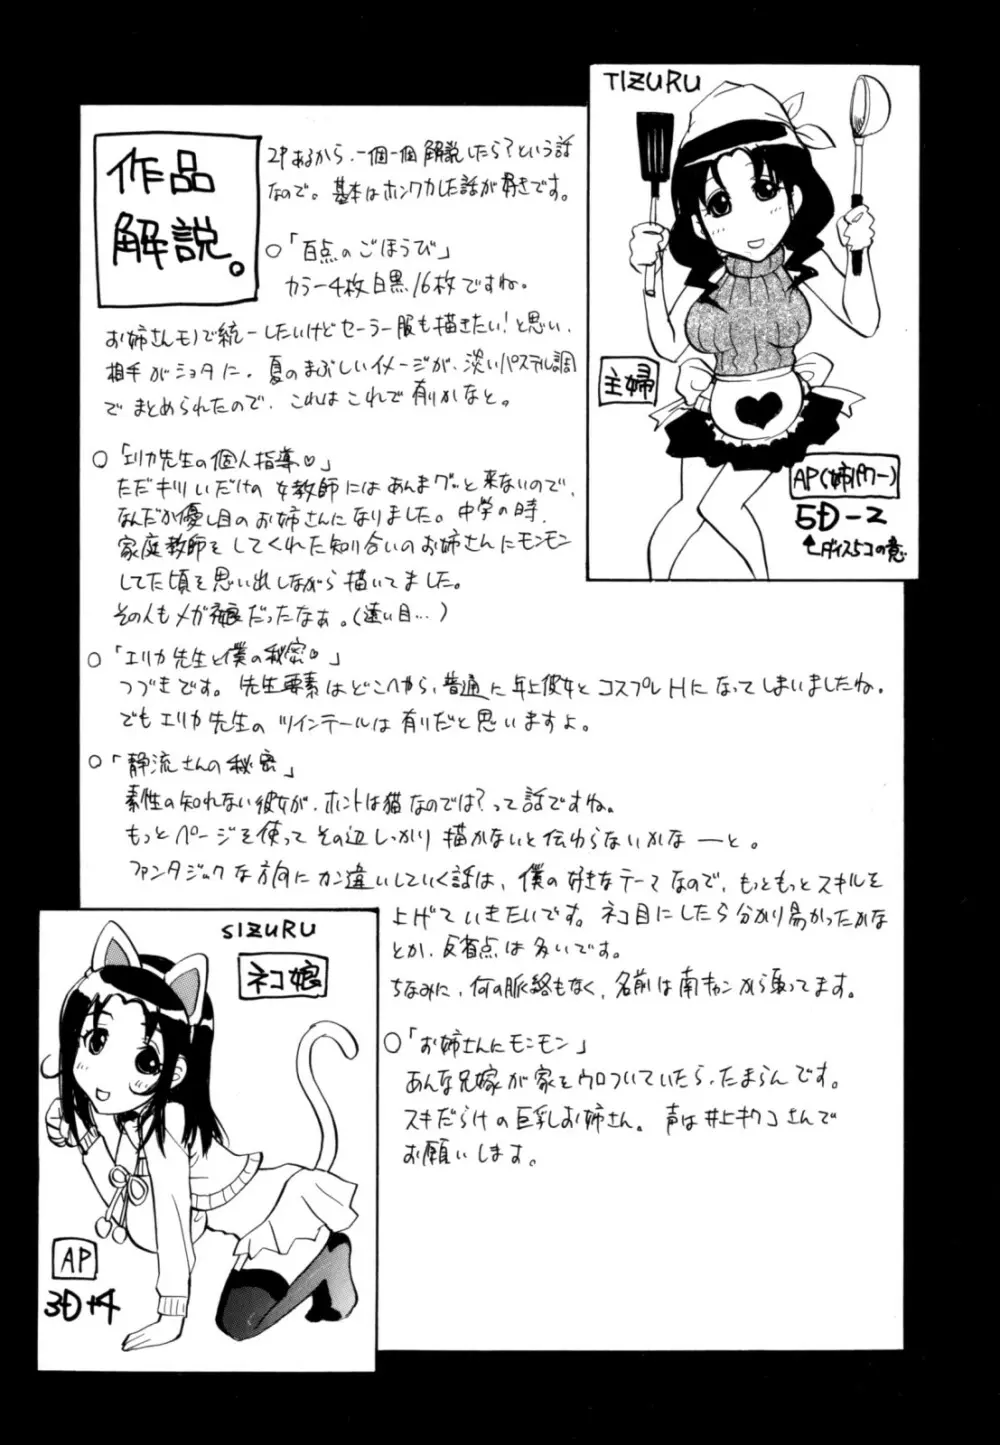 作品
解説。
2Pあるから、一個一個解説したら?という話
なので。基本はホンワカした話が好きです。
○「百点のごほうび」
カラー4枚白黒16枚ですね。
お姉さんモノで統一したいけどセーラー服も描きたい!と思い、
相手がショタに。夏のまぶしいイメージが、淡いパステル調
でまとめられたので、これはこれで有りかなと。
○「エリカ先生の個人指導♡」
ただキツいだけの女教師にはあんまグッと来ないので、
なんだか優し目のお姉さんになりました。中学の時、
家庭教師をしてくれた知り合いのお姉さんにモンモン
してた頃を思い出しながら描いてました。
その人もメガネ娘だったなぁ。(遠い目…)
○「エリカ先生と僕の秘密♡」
つづきです。先生要素はどこへやら、普通に年上彼女とコスプレHになってしまいましたね。
でもエリカ先生のツインテールは有りだと思いますよ。
○「静流さんの秘密」
素性の知れない彼女が、ホントは猫なのでは?って話ですね。
もっとページを使ってその辺しっかり描かないと伝わらないかなーと。
ファンタジックな方向にカン違いしていく話は、僕の好きなテーマなので、もっともっとスキルを
上げていきたいです。ネコ目にしたら分かり易かったかな
とか、反省点は多いです。
ちなみに、何の脈絡もなく、名前は南キャンから取ってます。
○「お姉さんにモンモン」
あんな兄嫁が家をウロついていたら、たまらんです。
スキだらけの巨乳お姉さん。声は井上キクコさんで
お願いします。
TIZURU
主婦
AP(姉パワー)
5D-2
↑ダイス5コの意
SIZURU
ネコ娘
AP
3D+4